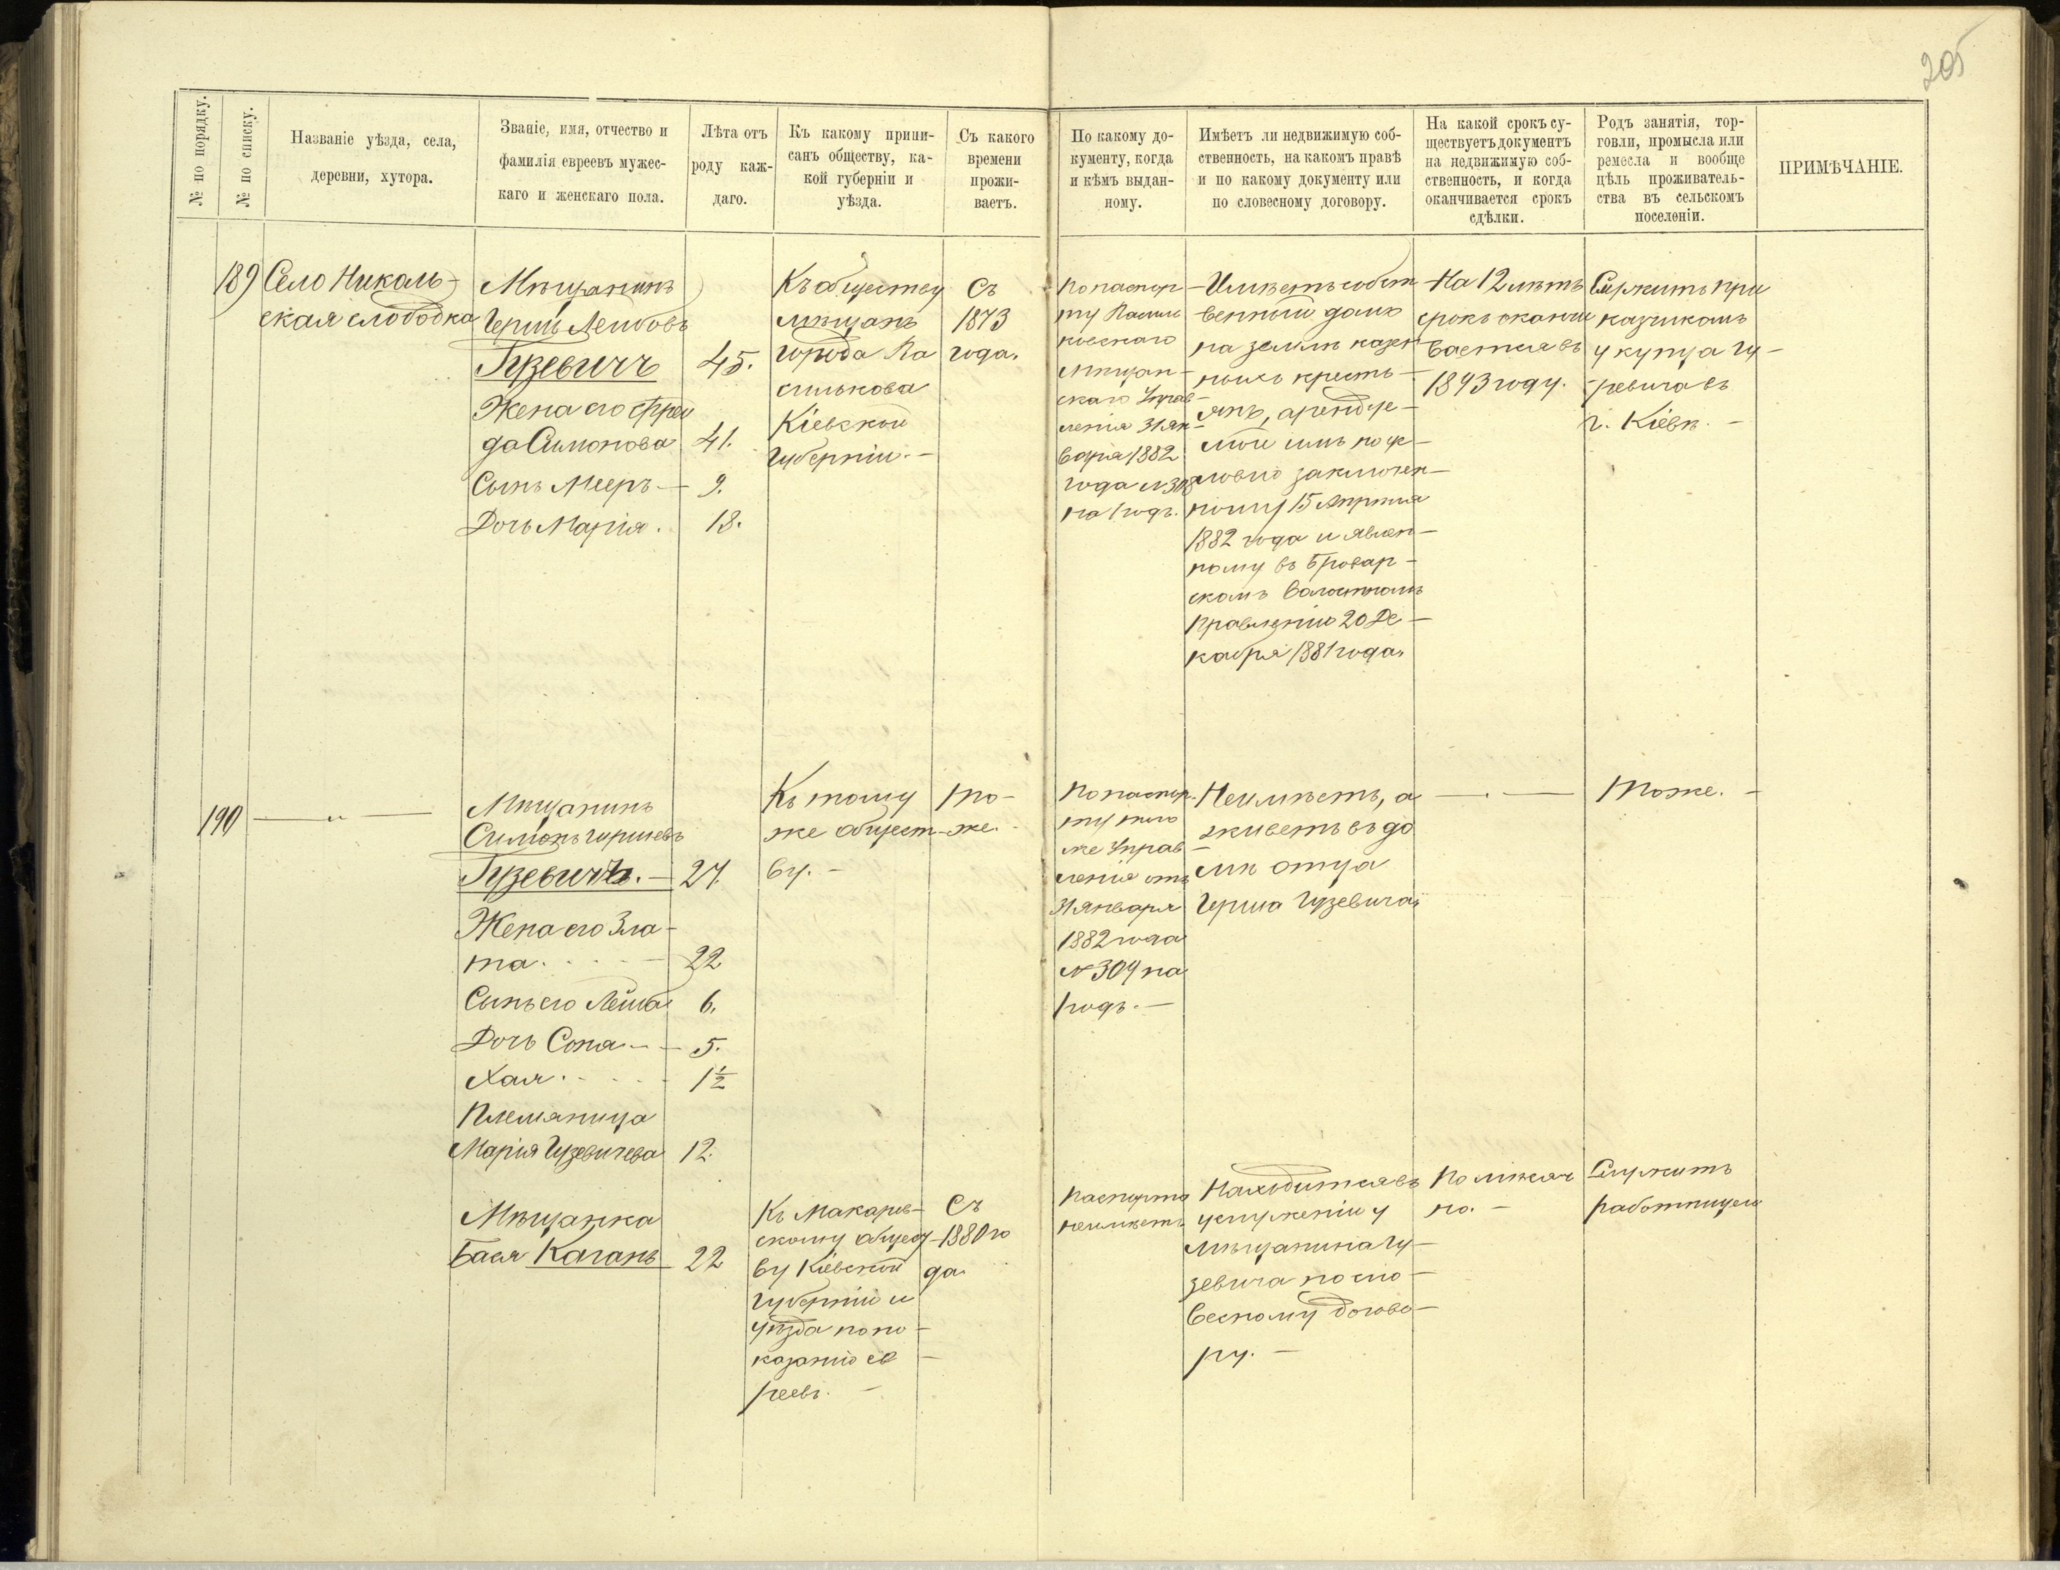 205
№ по порядку.
№ по списку.
Названіе уѣзда, села,
деревни, хутора.
Званіе, имя, отчество и
фамилія евреевъ мужес-
каго и женскаго пола.
Лѣта отъ
роду каж-
даго.
Къ какому припи-
санъ обществу, ка-
кой губерніи и
уѣзда.
Съ какого
времени
прожи-
ваетъ.
По какому до-
кументу, когда
и кѣмъ выдан-
ному.
Имѣетъ ли недвижимую соб-
ственность, на какомъ правѣ
и по какому документу или
по словесному договору.
На какой срокъ су-
ществуетъ документъ
на недвижимую соб-
ственность, и когда
оканчивается срокъ
сдѣлки.
Родъ занятія, тор-
говли, промысла или
ремесла и вообще
цѣль проживатель-
ства въ сельскомъ
поселеніи.
ПРИМѢЧАНІЕ.
189
Село Николь-
ская слободка
Мѣщанинъ
Гершъ Лейбовъ
Гузевичъ 45.
Жена его Фрей
да Симонова 41.
Сынъ Мееръ — 9.
Дочь Марія. 18.
Къ обществу
мѣщанъ
города Ва
силькова
Кіевской
Губерніи. —
Съ
1873
года.
По паспор
ту Василь
ковскаго
мѣщан-
скаго Управ-
ленія 31 Ян-
варя 1882
года № 308
на 1 годъ.
— Имѣетъ собст
венный домъ
на землѣ казен
ныхъ кресть-
янъ, арендуе-
мой имъ по ус-
ловію заключен-
ному 15 Апрѣля
1882 года и явлен-
ному въ Бровар-
скомъ Волостномъ
Правленіи 20 Де-
кабря 1881 года.
На 12 лѣтъ
срокъ оканчи
вается въ
1893 году.
Служитъ при
казчикомъ
у купца Гу-
ревича въ
г. Кіевѣ. —
190 — „ —
Мѣщанинъ
Симонъ Гершевъ
Гузевичъ. — 27.
Жена его Зла-
та. 22
Сынъ его Лейба 6.
Дочь Соня — 5.
Хая. 1½
Племяница
Марія Гузевичева 12.
Къ тому
же общест-
ву. —
То-
же.
По паспор-
ту того
же Управ-
ленія отъ
31 Января
1882 года
№ 309 на
1 годъ. —
Не имѣетъ, а
живетъ въ до
мѣ отца
Герша Гузевича.
— . —
Тоже. —
Мѣщанка
Бася Каганъ 22
Къ Макаров-
скому общест-
ву Кіевской
Губерніи и
уѣзда по по-
казанію ев-
реевъ. —
Съ
1880 го
да.
Паспорта
не имѣетъ
Находится въ
услуженіи у
мѣщанина Гу-
зевича по сло-
весному догово-
ру. —
По мѣсяч
но. —
Служитъ
работницей